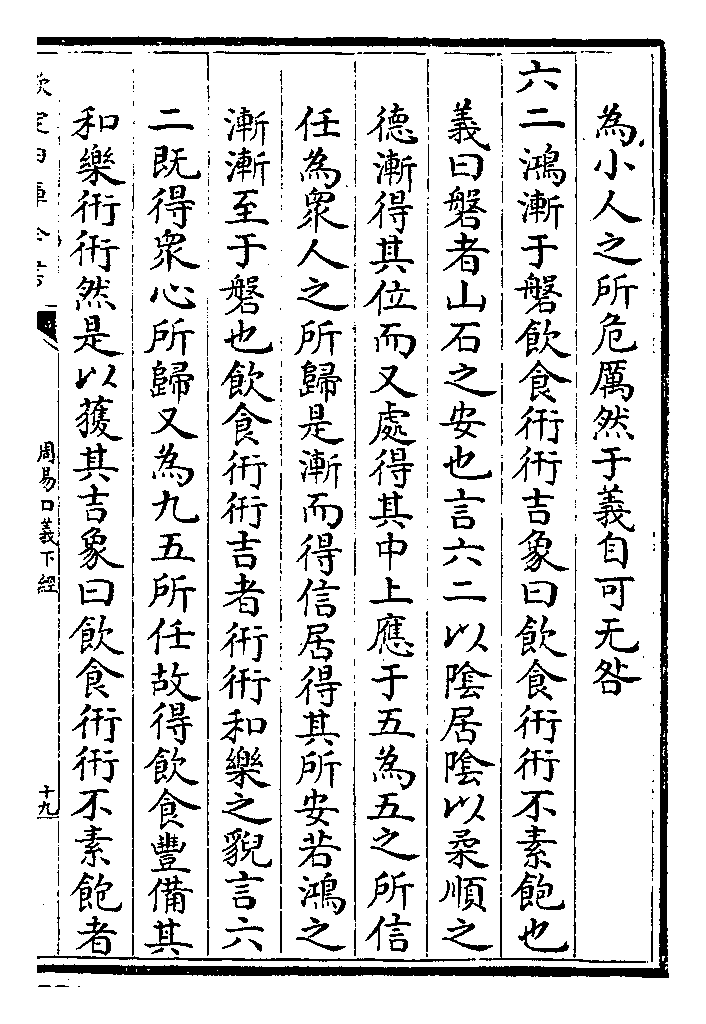 為小人之所危厲然于義自可无咎
六二鴻漸于磐飲食衎衎吉象曰飲食衎衎不素飽也
義曰磐者山石之安也言六二以陰居陰以柔順之
德漸得其位而又處得其中上應于五為五之所信
任為衆人之所歸是漸而得信居得其所安若鴻之
漸漸至于磐也飲食衎衎吉者衎衎和樂之貌言六
二既得衆心所歸又為九五所任故得飲食豐備其
和樂衎衎然是以獲其吉象曰飲食衎衎不素飽者
欽定四庫全書
周易口義下經
十九